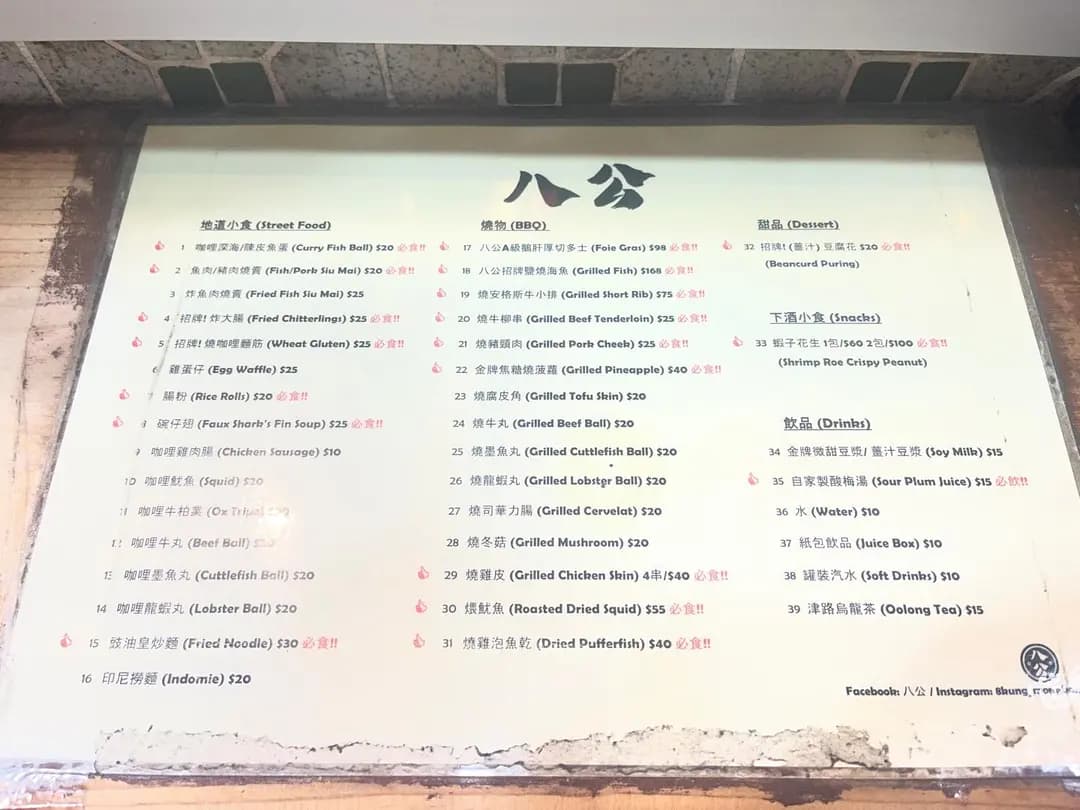 八公
地道小食 (Street Food)
1 咖哩深海/陳皮魚蛋 (Curry Fish Ball) $20 必食!!
2 魚肉/豬肉燒賣 (Fish/Pork Siu Mai) $20 必食!!
3 炸魚肉燒賣 (Fried Fish Siu Mai) $25
4 招牌! 炸大腸 (Fried Chitterlings) $25 必食!!
5 招牌! 燒咖哩麵筋 (Wheat Gluten) $25 必食!!
6 雞蛋仔 (Egg Waffle) $25
7 腸粉 (Rice Rolls) $20 必食!!
8 碗仔翅 (Faux Shark's Fin Soup) $25 必食!!
9 咖哩雞肉腸 (Chicken Sausage) $10
10 咖哩魷魚 (Squid) $20
11 咖哩牛柏葉 (Ox Tripe) $20
12 咖哩牛丸 (Beef Ball) $20
13 咖哩墨魚丸 (Cuttlefish Ball) $20
14 咖哩龍蝦丸 (Lobster Ball) $20
15 豉油皇炒麵 (Fried Noodle) $30 必食!!
16 印尼撈麵 (Indomie) $20
燒物 (BBQ)
17 八公A級鵝肝厚切多士 (Foie Gras) $98 必食!!
18 八公招牌鹽燒海魚 (Grilled Fish) $168 必食!!
19 燒安格斯牛小排 (Grilled Short Rib) $75 必食!!
20 燒牛柳串 (Grilled Beef Tenderloin) $25 必食!!
21 燒豬頸肉 (Grilled Pork Cheek) $25 必食!!
22 金牌焦糖燒菠蘿 (Grilled Pineapple) $40 必食!!
23 燒腐皮角 (Grilled Tofu Skin) $20
24 燒牛丸 (Grilled Beef Ball) $20
25 燒墨魚丸 (Grilled Cuttlefish Ball) $20
26 燒龍蝦丸 (Grilled Lobster Ball) $20
27 燒司華力腸 (Grilled Cervelat) $20
28 燒冬菇 (Grilled Mushroom) $20
29 燒雞皮 (Grilled Chicken Skin) 4串/$40 必食!!
30 煨魷魚 (Roasted Dried Squid) $55 必食!!
31 燒雞泡魚乾 (Dried Pufferfish) $40 必食!!
甜品 (Dessert)
32 招牌! (薑汁) 豆腐花 $20 必食!!
(Beancurd Puring)
下酒小食 (Snacks)
33 蝦子花生 1包/$60 2包/$100 必食!!
(Shrimp Roe Crispy Peanut)
飲品 (Drinks)
34 金牌微甜豆漿/ 薑汁豆漿 (Soy Milk) $15
35 自家製酸梅湯 (Sour Plum Juice) $15 必飲!!
36 水 (Water) $10
37 紙包飲品 (Juice Box) $10
38 罐裝汽水 (Soft Drinks) $10
39 津路烏龍茶 (Oolong Tea) $15
八公
Facebook: 八公 / Instagram: 8kung